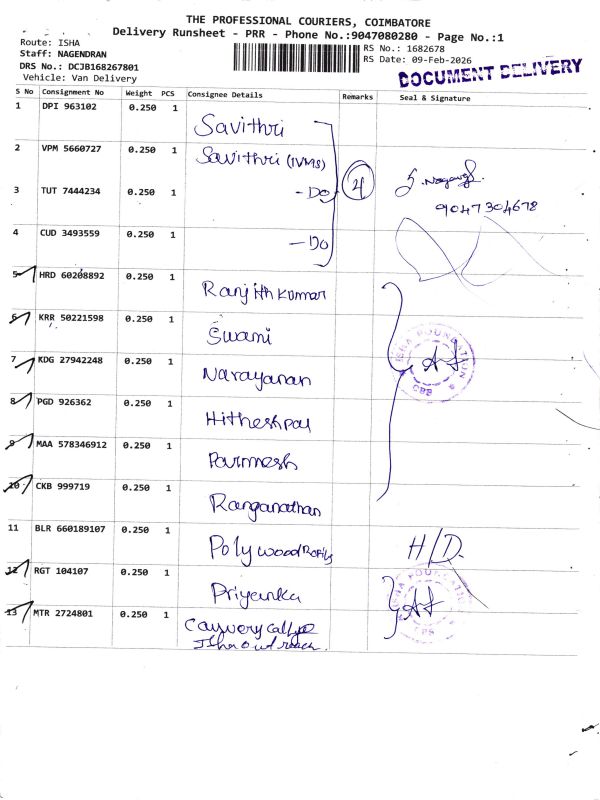 THE PROFESSIONAL COURIERS, COIMBATORE
Delivery Runsheet - PRR - Phone No.:9047080280 - Page No.:1
Route: ISHA
Staff: NAGENDRAN
DRS No.: DCJB168267801
Vehicle: Van Delivery
RS No.: 1682678
RS Date: 09-Feb-2026
DOCUMENT DELIVERY
S No Consignment No Weight PCS Consignee Details Remarks Seal & Signature
1 DPI 963102 0.250 1 Savithri
2 VPM 5660727 0.250 1 Savithri (IVMS)
3 TUT 7444234 0.250 1 - Do
4
9047304678
4 CUD 3493559 0.250 1 - Do
5 HRD 60208892 0.250 1 Ranjith Kumar
6 KRR 50221598 0.250 1 Swami
7 KDG 27942248 0.250 1 Narayanan
ISHA FOUNDATION
CBS
8 PGD 926362 0.250 1 Hitheshpal
9 MAA 578346912 0.250 1 Parmesh
10 CKB 999719 0.250 1 Ranganathan
11 BLR 660189107 0.250 1 Polywood Profils H/D.
12 RGT 104107 0.250 1 Priyanka
13 MTR 2724801 0.250 1 Cauvery calling
Isha outreach.
ISHA FOUNDATION
CBS